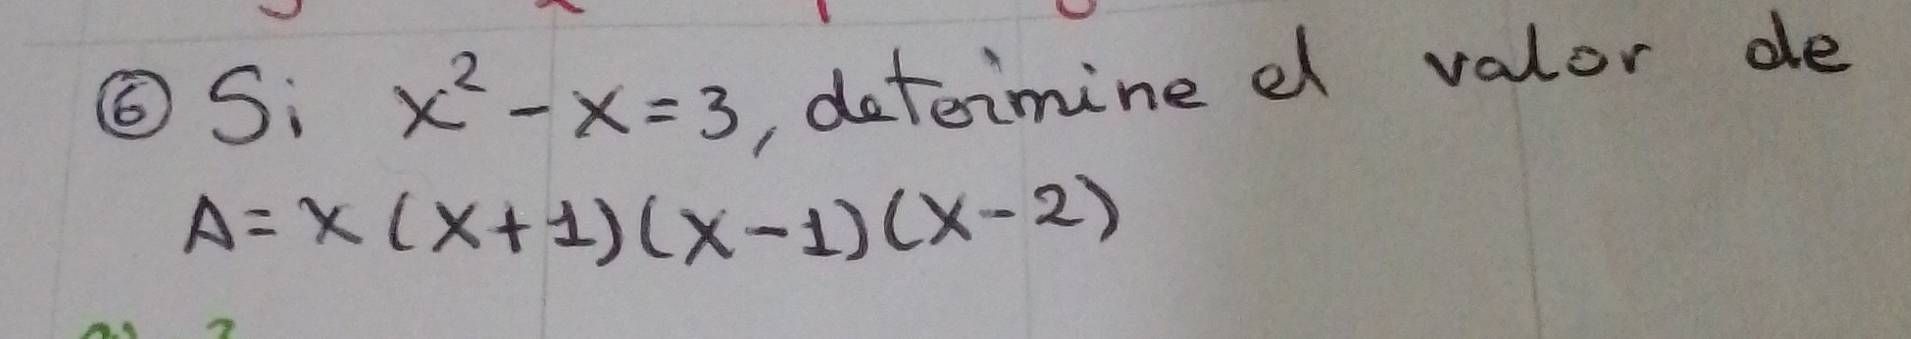 ⑥ Si x² - x = 3, determine el valor de
A = x (x + 1)(x - 1)(x - 2)